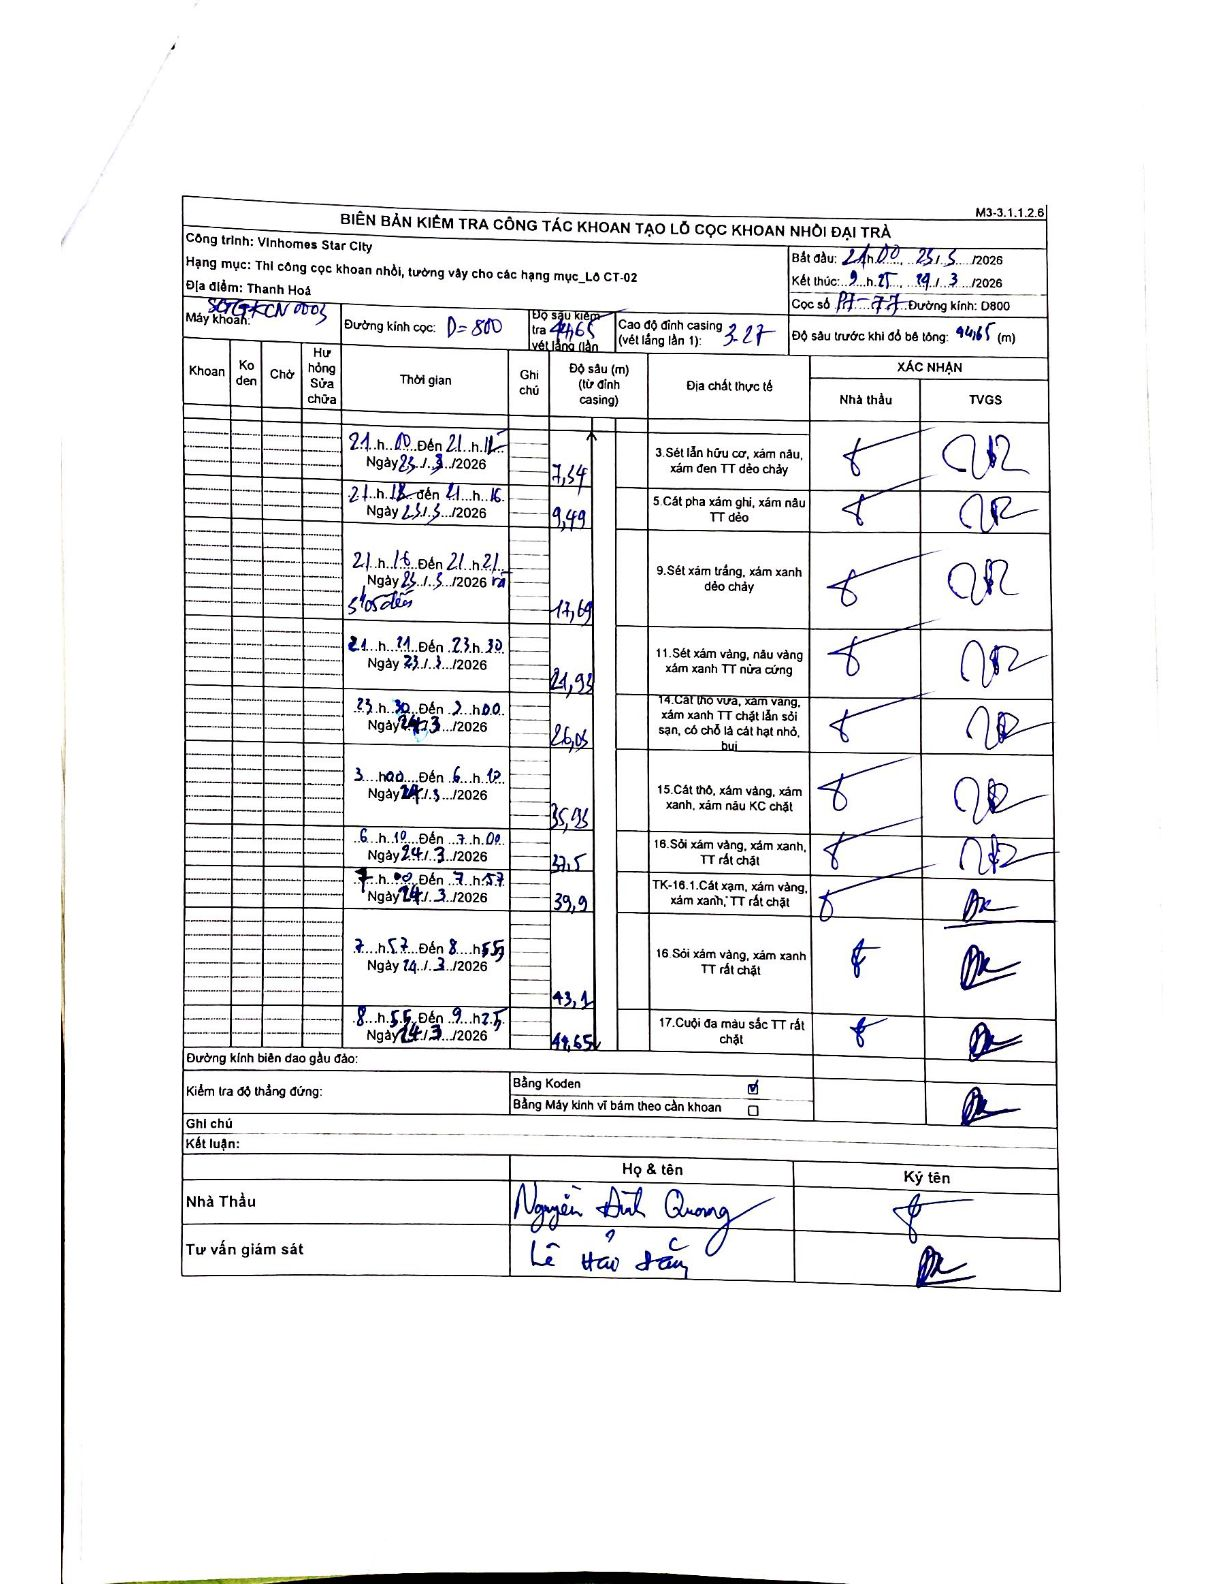 M3-3.1.1.2.6
BIÊN BẢN KIỂM TRA CÔNG TÁC KHOAN TẠO LỖ CỌC KHOAN NHỒI ĐẠI TRÀ
Công trình: Vinhomes Star City
Hạng mục: Thi công cọc khoan nhồi, tường vây cho các hạng mục_Lô CT-02
Địa điểm: Thanh Hoá
Bắt đầu: 21h00, 23/3/2026
Kết thúc: 9.h.25, /3/2026
Cọc số P7-77 Đường kính: D800
Máy khoan:
Đường kính cọc: D=800
Độ sâu kiểm tra 44,65 vét lắng (lần
Cao độ đỉnh casing (vét lắng lần 1): 3.27
Độ sâu trước khi đổ bê tông: 44,65 (m)
Khoan
Ko đen
Chờ
Hư hỏng Sửa chữa
Thời gian
Ghi chú
Độ sâu (m) (từ đỉnh casing)
Địa chất thực tế
XÁC NHẬN
Nhà thầu
TVGS
21.h.00.Đến 21.h.12
Ngày 23/.3./2026
7,54
3.Sét lẫn hữu cơ, xám nâu, xám đen TT dẻo chảy
21.h.12 đến 21.h.16
Ngày 23/3/2026
9,49
5.Cát pha xám ghi, xám nâu TT dẻo
21.h.16.Đến 21.h.21
Ngày 23/.3./2026
17,69
9.Sét xám trắng, xám xanh dẻo chảy
21.h.21.Đến 23.h.30
Ngày 23/.3./2026
21,93
11.Sét xám vàng, nâu vàng xám xanh TT nửa cứng
23.h.30.Đến 3.h00
Ngày 24/3/2026
26,03
14.Cát thô vừa, xám vàng, xám xanh TT chặt lẫn sỏi sạn, có chỗ là cát hạt nhỏ, bụi
3.h00.Đến 6.h.10
Ngày 24/.3./2026
35,93
15.Cát thô, xám vàng, xám xanh, xám nâu KC chặt
6.h.10.Đến 7.h.00
Ngày 24/.3./2026
37,5
16.Sỏi xám vàng, xám xanh, TT rất chặt
7.h.00.Đến 7.h.57
Ngày 24/.3./2026
39,9
TK-16.1.Cát xạm, xám vàng, xám xanh, TT rất chặt
7.h.57.Đến 8.h55
Ngày 24/.3./2026
43,1
16.Sỏi xám vàng, xám xanh TT rất chặt
8.h.55.Đến 9.h25
Ngày 24/3/2026
44,65
17.Cuội đa màu sắc TT rất chặt
Đường kính biên dao gầu đào:
Kiểm tra độ thẳng đứng:
Bằng Koden ☑
Bằng Máy kinh vĩ bám theo cần khoan ☐
Ghi chú
Kết luận:
Họ & tên
Ký tên
Nhà Thầu
Nguyễn Đình Quang
Tư vấn giám sát
Lê